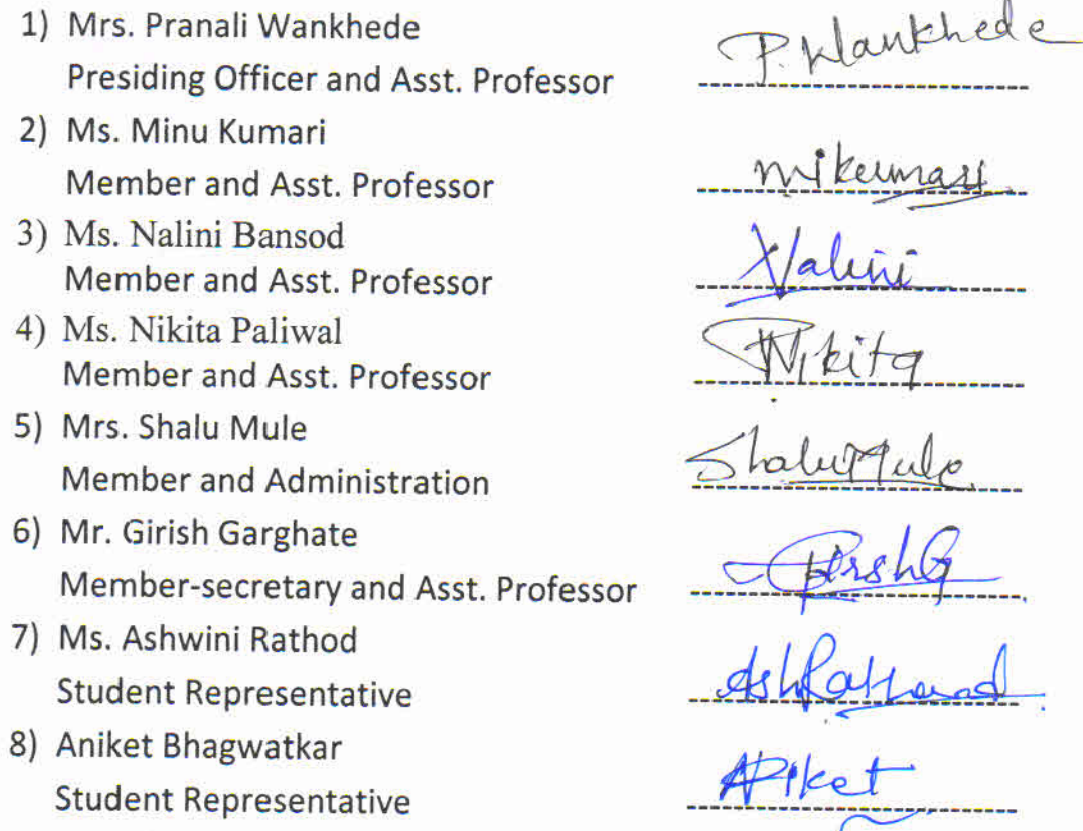 1) Mrs. Pranali Wankhede
P. Wankhede
Presiding Officer and Asst. Professor
2) Ms. Minu Kumari
Member and Asst. Professor
mikumari
3) Ms. Nalini Bansod
Member and Asst. Professor
Nalini
4) Ms. Nikita Paliwal
Member and Asst. Professor
Nikita
5) Mrs. Shalu Mule
Member and Administration
Shalu Mule
6) Mr. Girish Garghate
Member-secretary and Asst. Professor
7) Ms. Ashwini Rathod
Student Representative
AshRathod
8) Aniket Bhagwatkar
Student Representative
Aniket